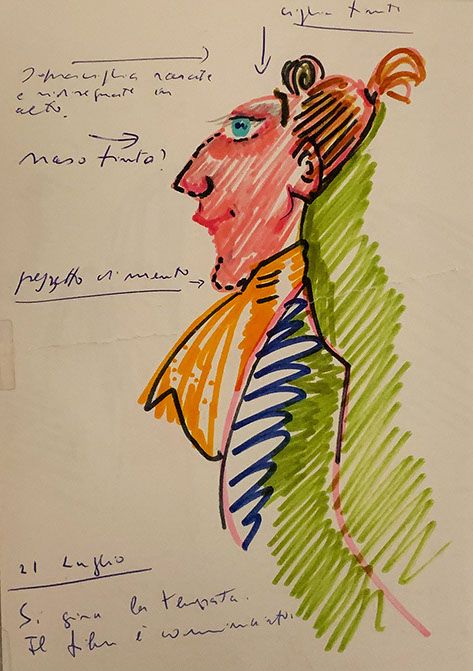 ciglia finte
Sopracciglia rasate
e ridisegnate in
alto.
naso finto?
pezzetto di mento
21 Luglio
Si gira la tempesta.
Il film è cominciato.